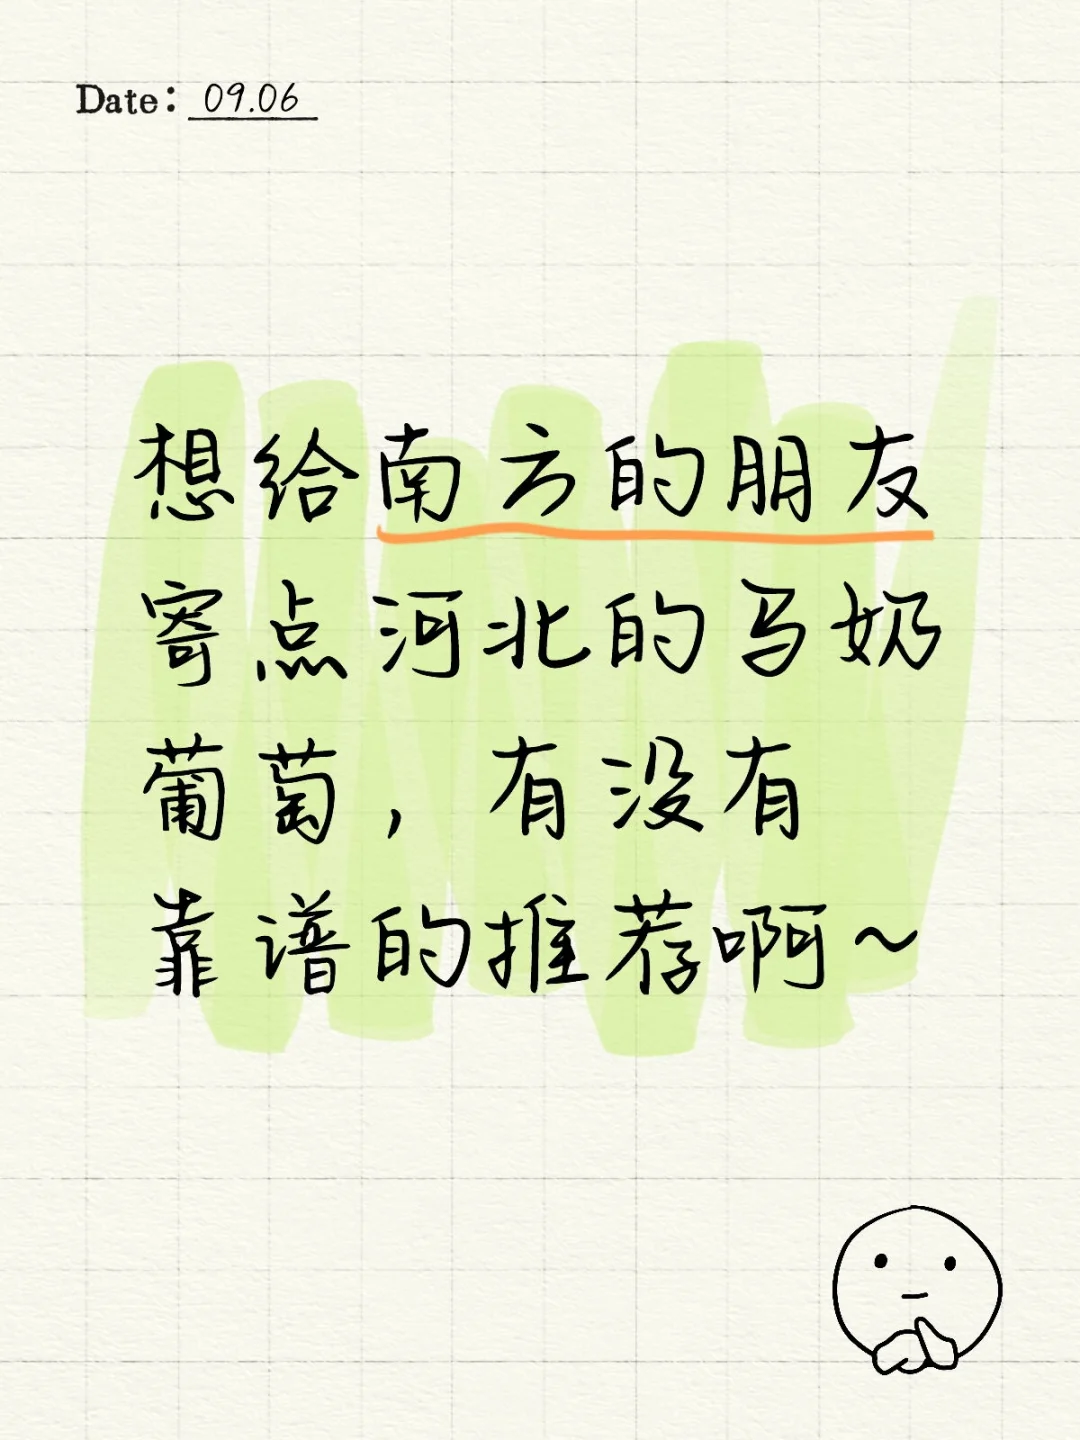 Date: 09.06
想给南方的朋友
寄点河北的马奶
葡萄，有没有
靠谱的推荐啊~